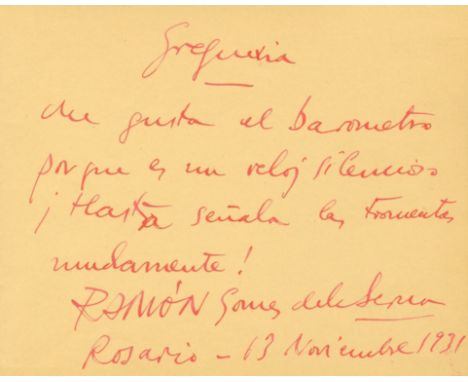 Greguería
Me gusta el barometro
porque es un reloj silencioso
¡Hasta señala las tormentas
mudamente!
RAMÓN Gomez de la Serna
Rosario - 13 Noviembre 1931